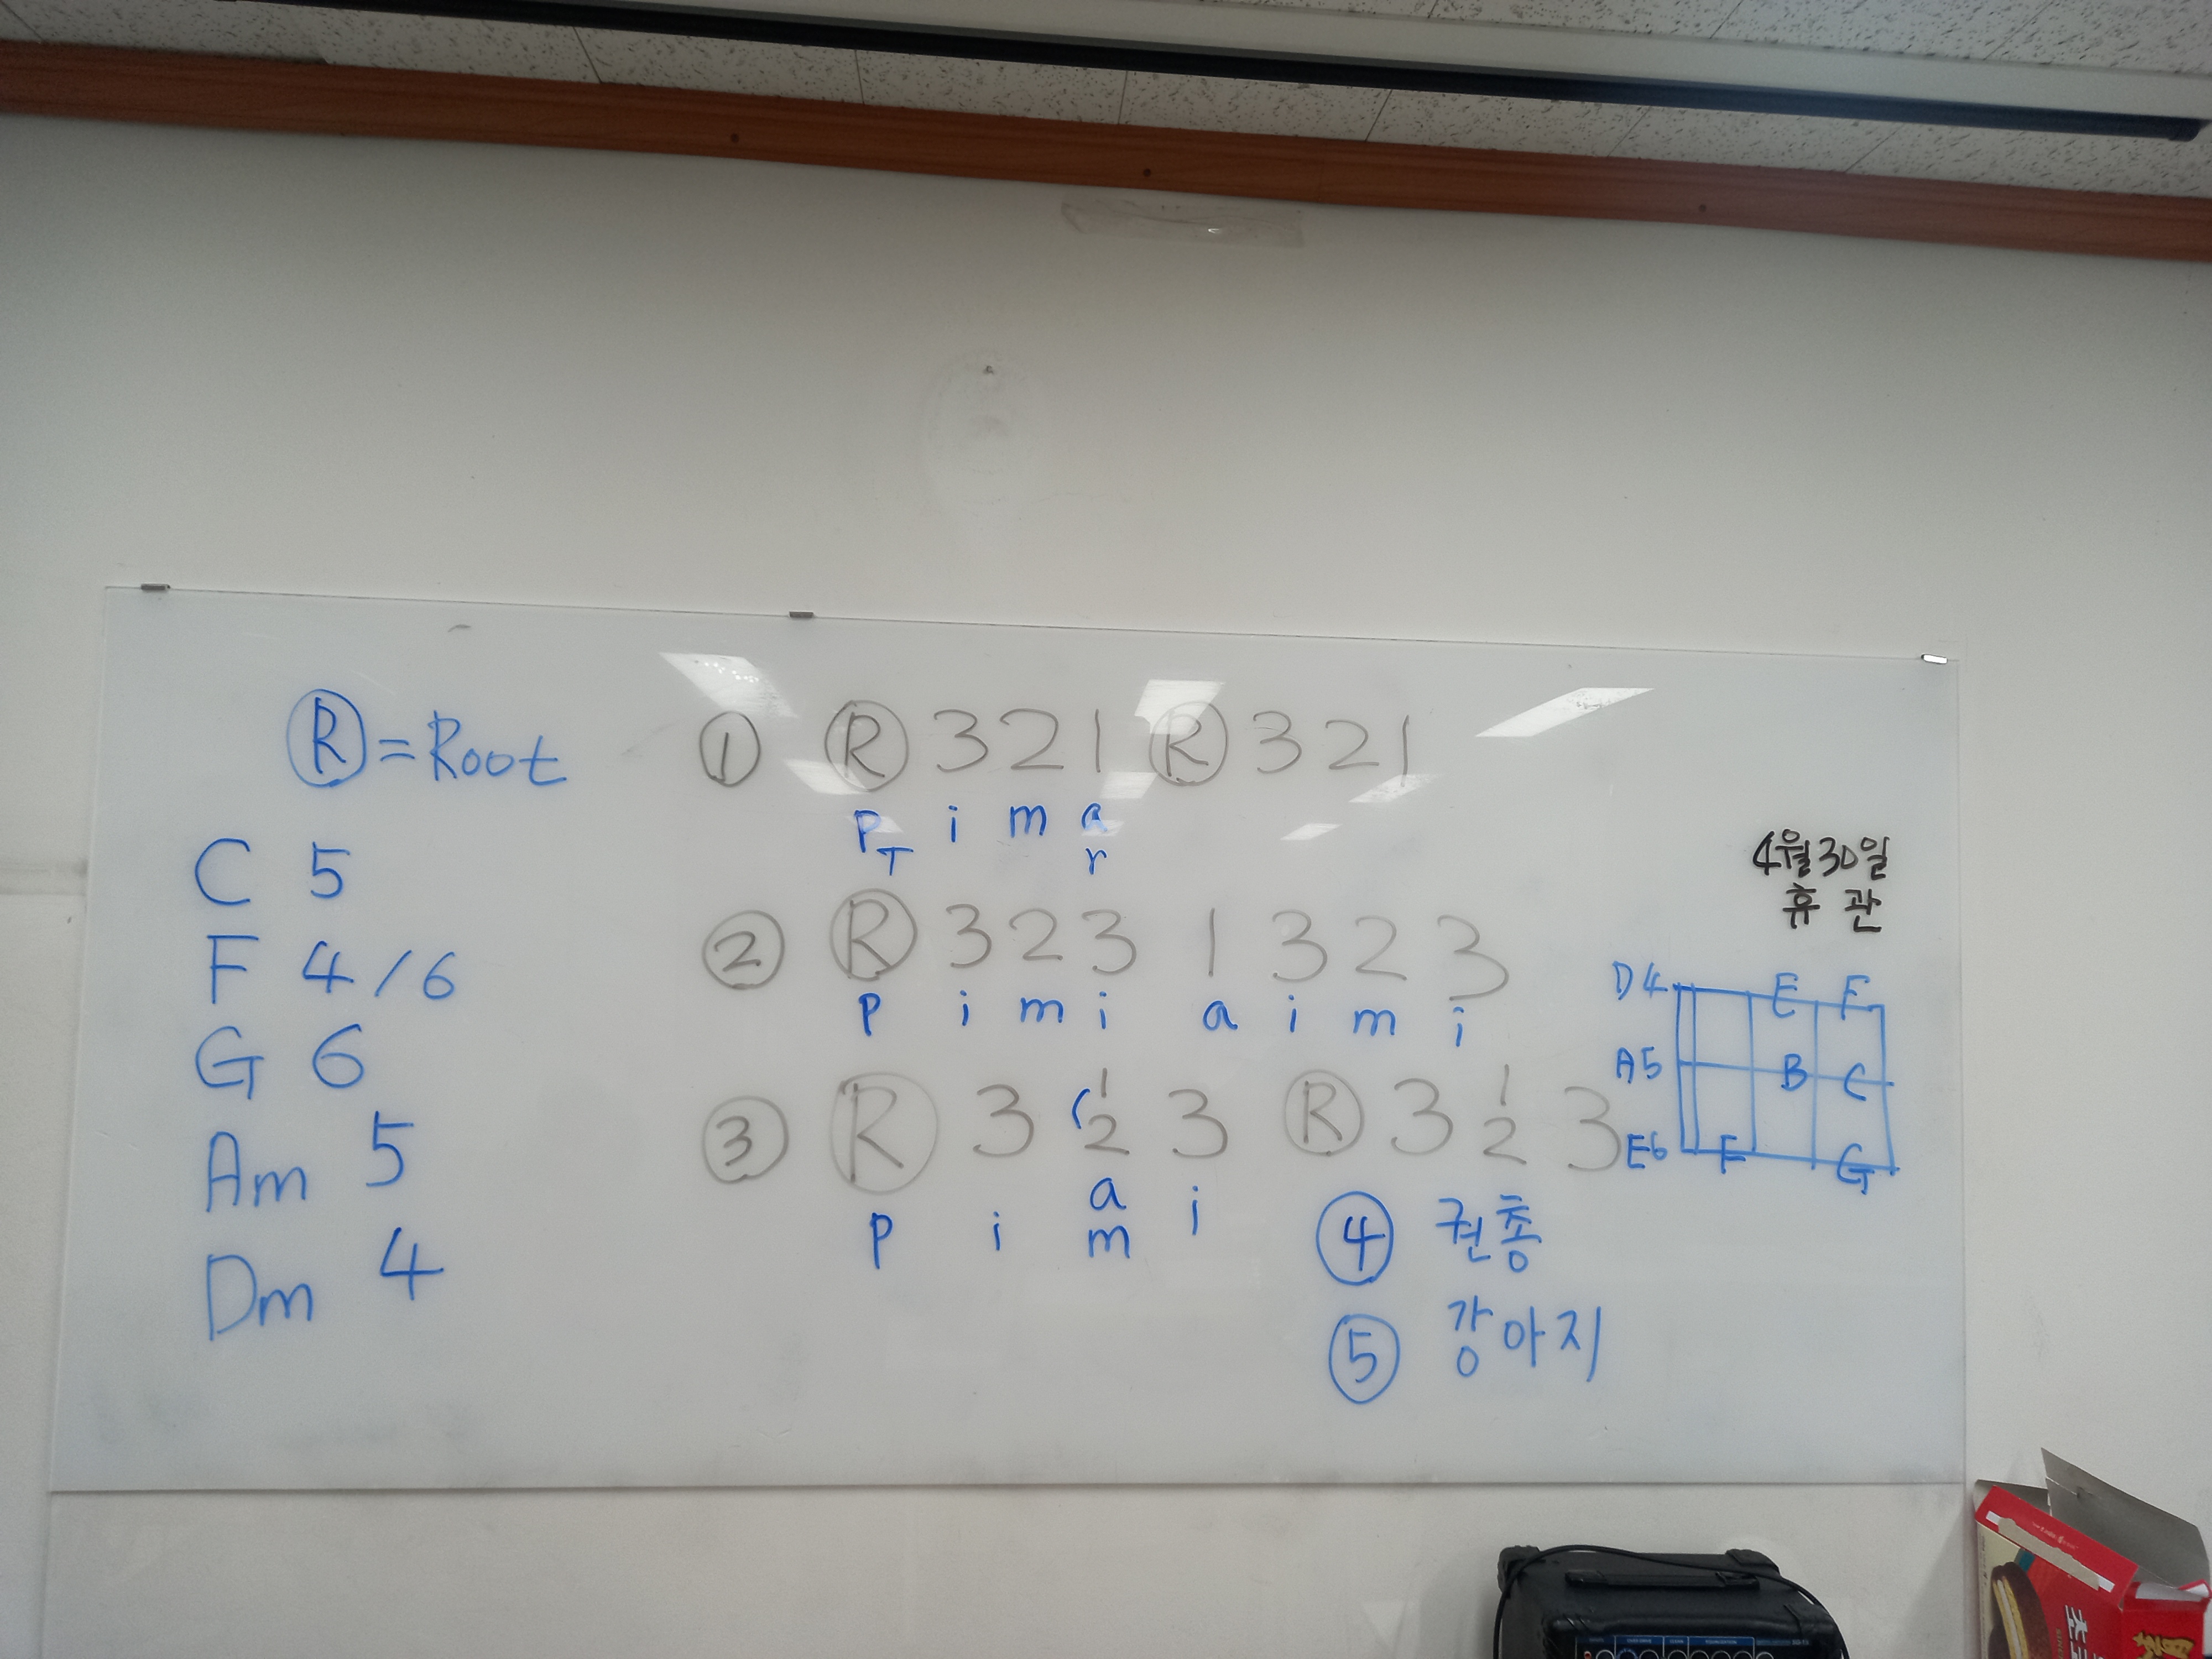 Ⓡ = Root
C 5
F 4/6
G 6
Am 5
Dm 4
① Ⓡ 3 2 1 Ⓡ 3 2 1
P i m a
T r
② Ⓡ 3 2 3 1 3 2 3
P i m i a i m i
③ Ⓡ 3 1/2 3 Ⓡ 3 1/2 3
P i a/m i
④ 권총
⑤ 강아지
4월30일
휴관
D4 E F
A5 B C
E6 F G